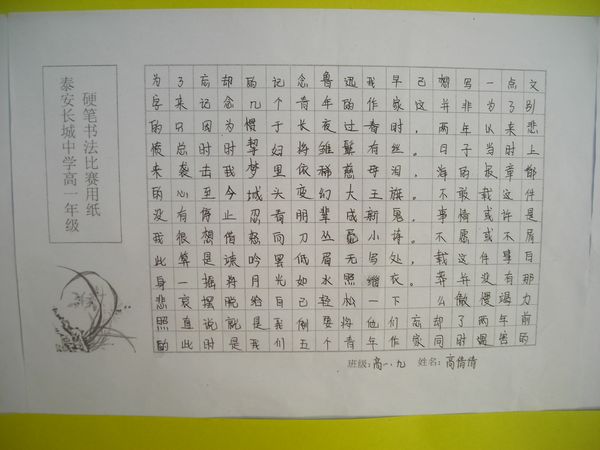 硬笔书法比赛用纸
泰安长城中学高一年级
为了忘却的记念鲁迅我早已想写一点文
字来记念几个青年的作家这并非为了别
的只因为惯于长夜过春时，两年以来悲
愤总时时挈妇将雏鬓有丝。日子当时上
来袭击我梦里依稀慈母泪，海的报章都
的心至今城头变幻大王旗。不敢载这件
没有停止忍看朋辈成新鬼，事情或许是
我很想借怒向刀丛觅小诗。不愿或不屑
此算是谏吟罢低眉无写处，载这件事自
身一摇将月光如水照缁衣。并没有那
悲哀摆脱给自己轻松一下 么傲慢竭力
照直说就是我倒要将他们忘却了两年前
的此时是我们五个青年作家同时遇害的
班级:高一.九 姓名:高倩倩